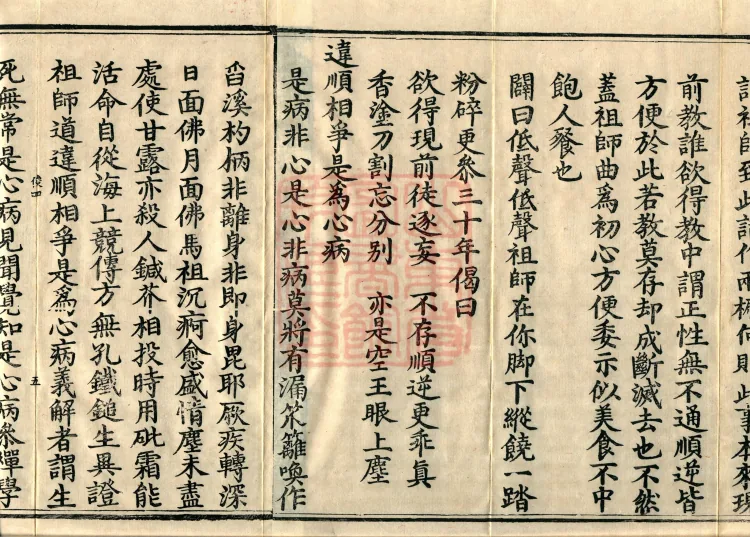 前教誰欲得教中謂正性無不通順逆皆
方便於此若教莫存却成斷滅去也不然
蓋祖師曲爲初心方便委示似美食不中
飽人飡也
闢曰低聲低聲祖師在你脚下縱饒一踏
粉碎更叅三十年偈曰
欲得現前徒逐妄 不存順逆更乖眞
香塗刀割忘分別 亦是空王眼上塵
違順相爭是為心病
是病非心是心非病莫將有漏笊籬喚作
曹溪杓柄非離身非即身毘耶厥疾轉深
日面佛月面佛馬祖沉痾愈盛情塵未盡
處使甘露亦殺人鍼芥相投時用砒霜能
活命自從海上競傳方無孔鐵鎚生異證
祖師道違順相爭是爲心病義解者謂生
俊四
五
死無常是心病見聞覺知是心病叅禪學